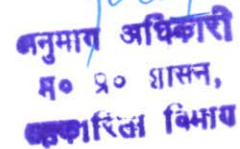 अनुभाग अधिकारी
म० प्र० शासन,
सहकारिता विभाग